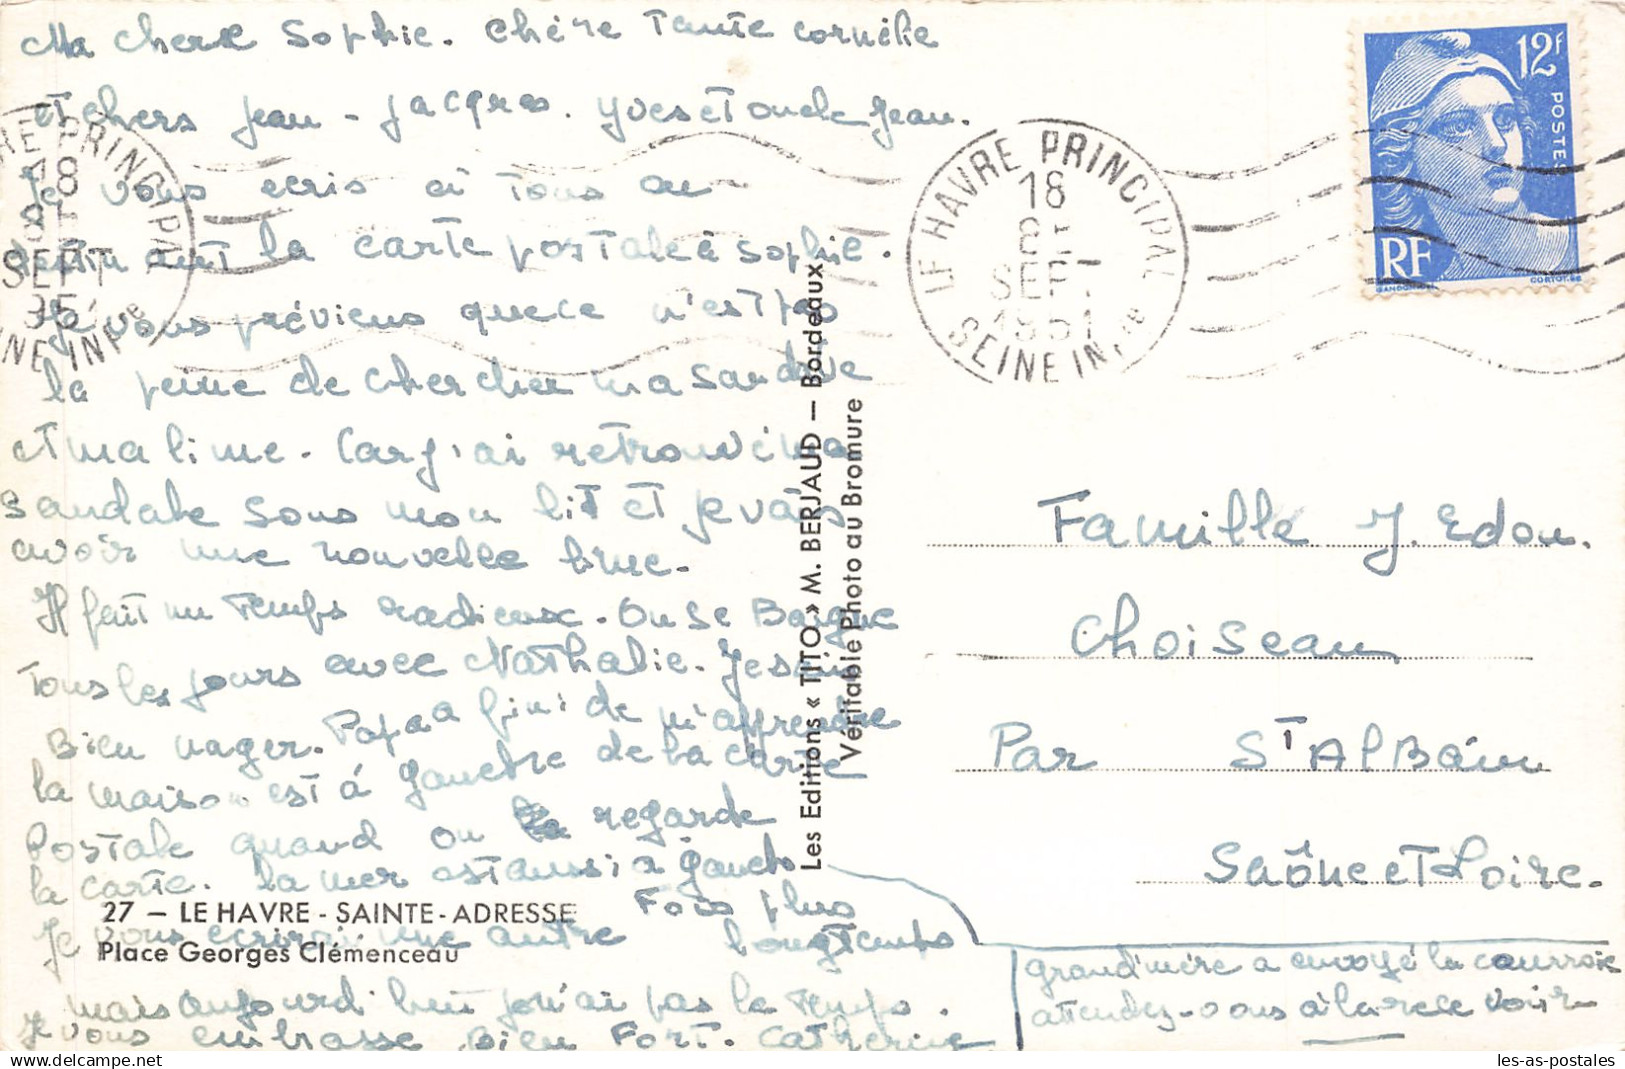 Ma chere Sophie. chère Tante cornélie
et chers jean-jacques. Yves et oncle jean.
Je vous ecris à Tous au
la carte postale à Sophie.
Je vous préviens que ce n'est pas
la peine de chercher ma sandale
et ma lime. Car j'ai retrouvé ma
sandale sous mon lit et je vais
avoir une nouvelle lime.
Il fait un temps radieux. On se Baigne
Tous les jours avec Nathalie. Je sais
Bien nager. Papa a fini de m'apprendre
la maison est à gauche de la carte
Postale quand on regarde
la carte. la mer est aussi à gauche
Je vous ecrirai une autre Fois plus longtemps
mais aujourd'hui je n'ai pas le temps.
Je vous embrasse Bien Fort. Catherine
27 — LE HAVRE - SAINTE-ADRESSE
Place Georges Clémenceau
Les Editions « TITO » M. BERJAUD — Bordeaux
Véritable Photo au Bromure
HE PRINCIPAL
18
SEPT
INE INFre
LE HAVRE PRINCIPAL
18
SEP.
1951
SEINE INFre
12F
POSTES
RF
GANDON
CORTOT
Famille J. Edou.
Choiseau
Par St Albain
Saône et Loire.
grand'mère a envoyé la courroie
attendez-vous à la recevoir
delcampe.net
les-as-postales